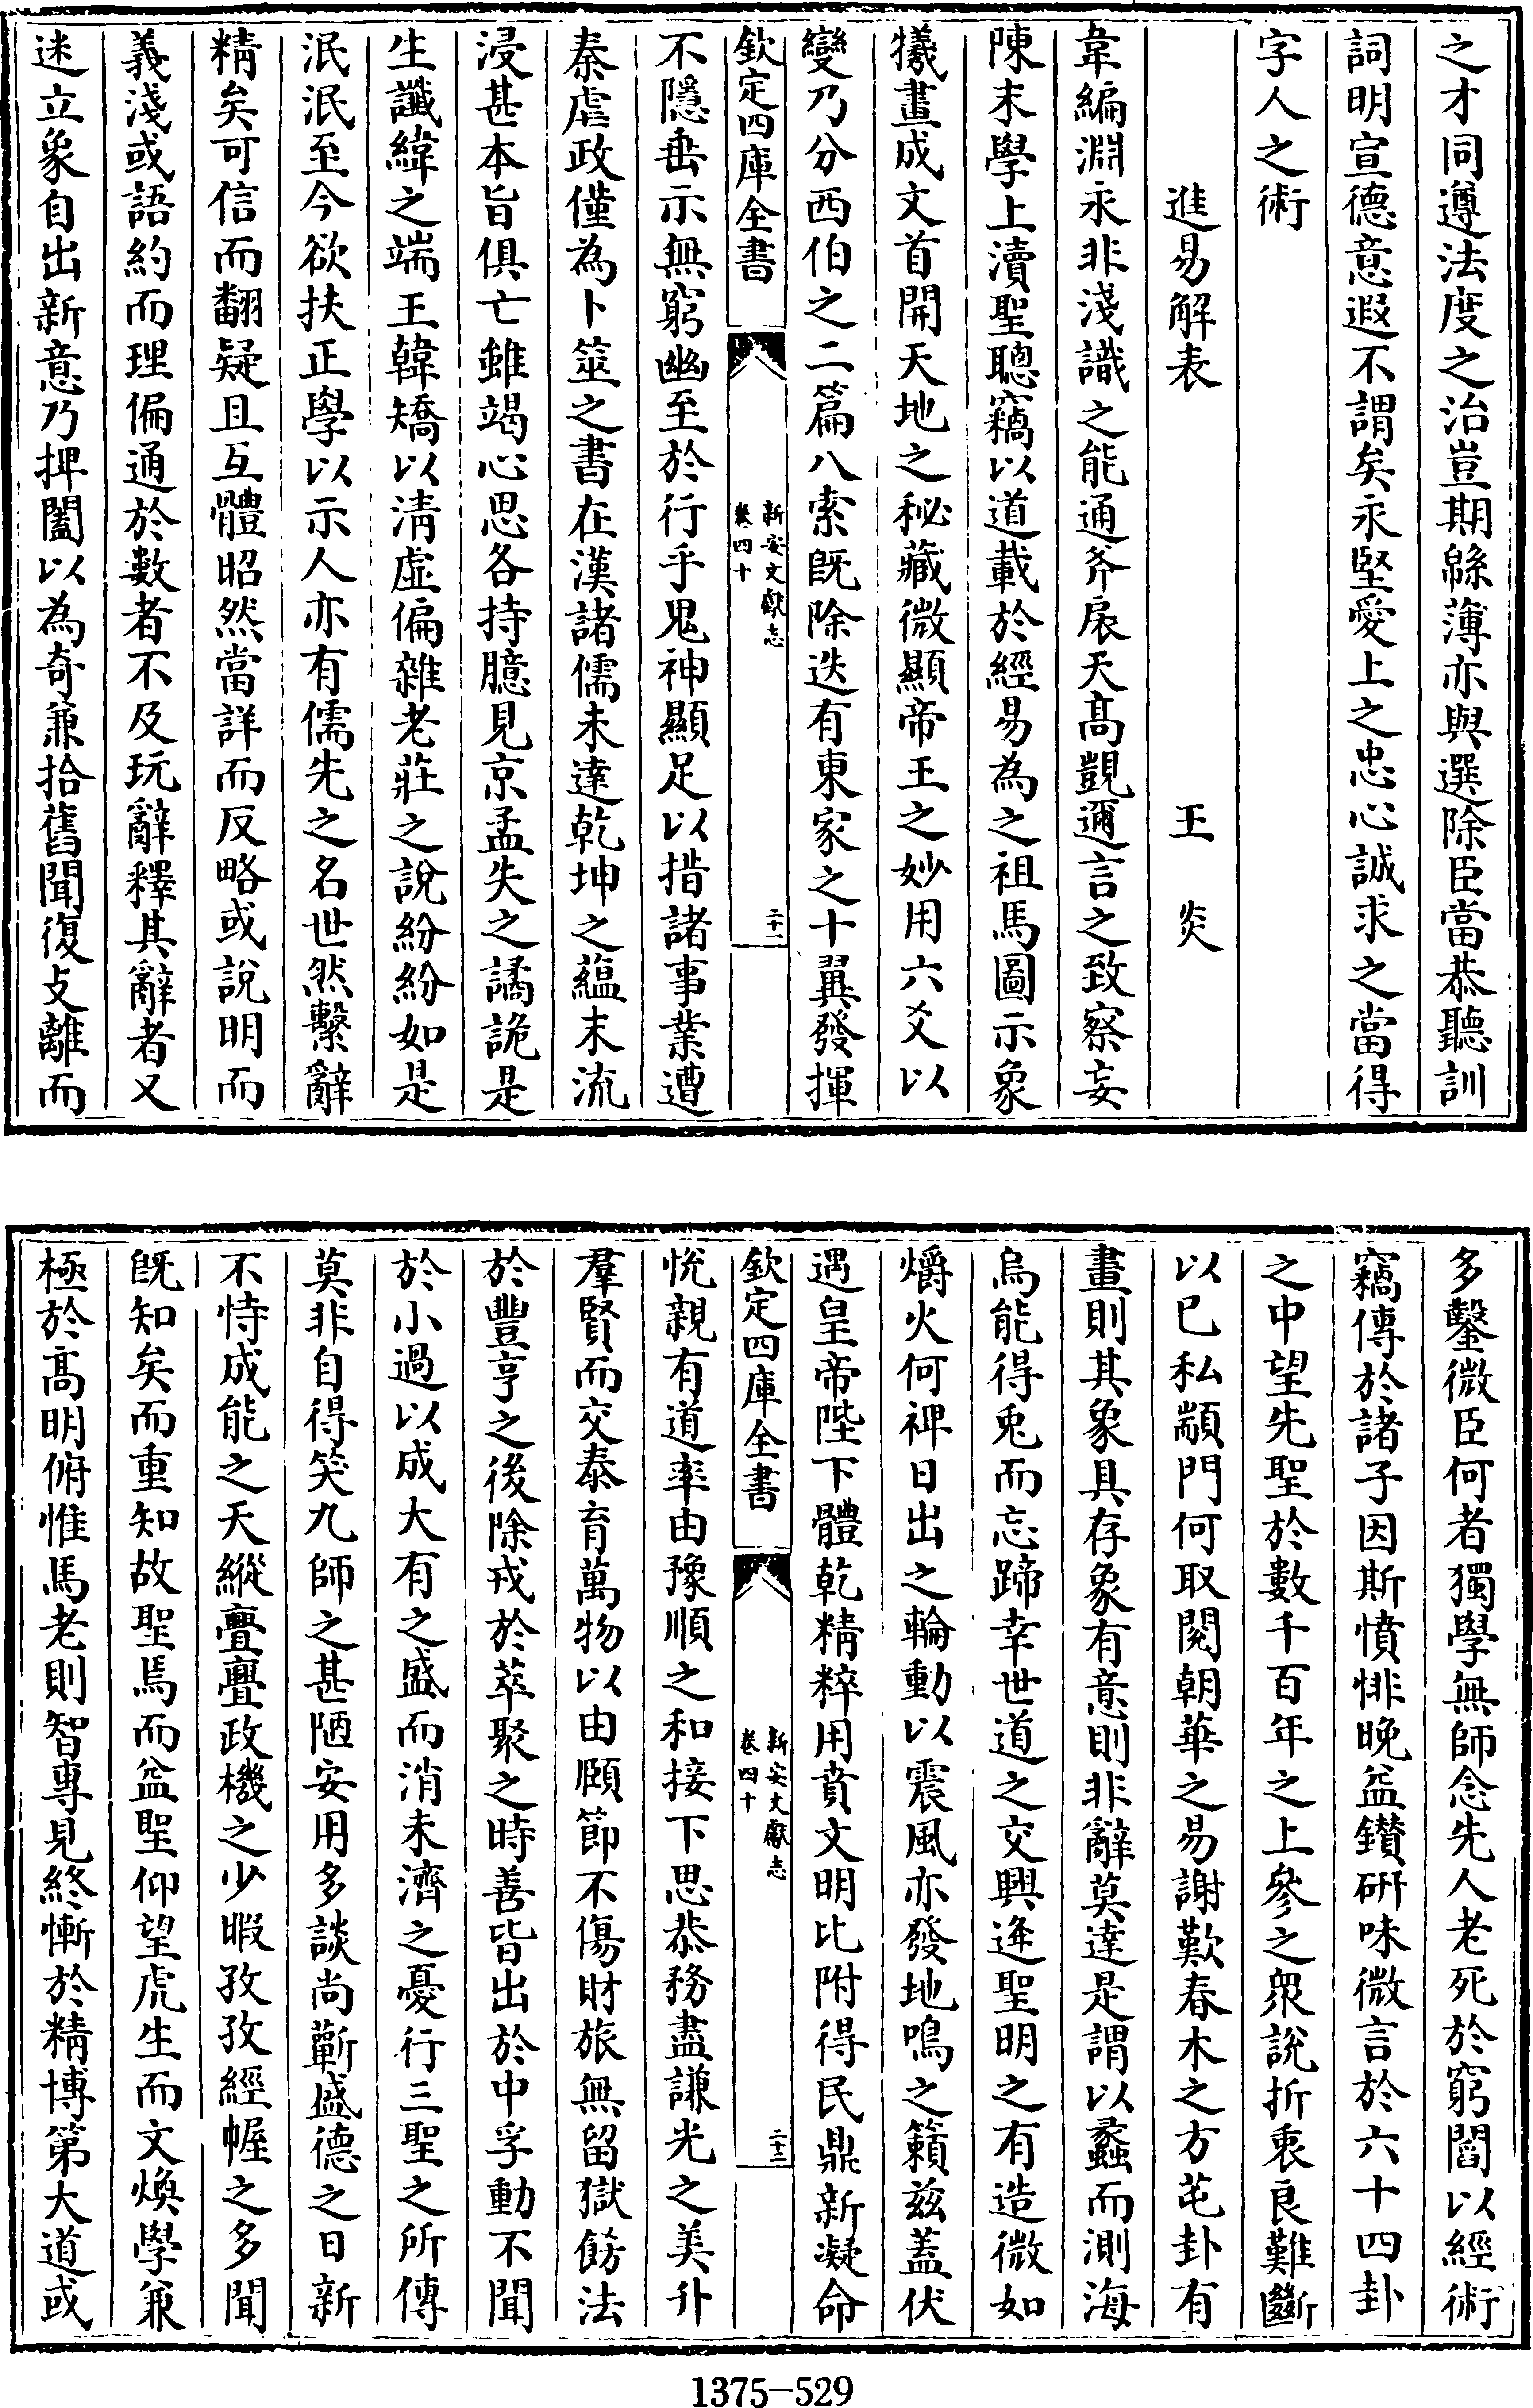 之才同遵法度之治豈期緜薄亦與選除臣當恭聽訓
詞明宣德意遐不謂矣永堅愛上之忠心誠求之當得
字人之術
進易解表 王炎
韋編淵永非淺識之能通斧扆天髙覬邇言之致察妄
陳末學上瀆聖聰竊以道載於經易為之祖馬圖示象
犧畫成文首開天地之秘藏微顯帝王之妙用六爻以
變乃分西伯之二篇八索既除迭有東家之十翼發揮
欽定四庫全書
新安文獻志
卷四十
二十一
不隱垂示無窮幽至於行乎鬼神顯足以措諸事業遭
秦虐政僅為卜筮之書在漢諸儒未達乾坤之蘊末流
浸甚本旨俱亡雖竭心思各持臆見京孟失之譎詭是
生讖緯之端王韓矯以清虛偏雜老莊之說紛紛如是
泯泯至今欲扶正學以示人亦有儒先之名世然繫辭
精矣可信而翻疑且互體昭然當詳而反略或說明而
義淺或語約而理偏通於數者不及玩辭釋其辭者又
迷立象自出新意乃捭闔以為奇兼拾舊聞復攴離而
多鑿微臣何者獨學無師念先人老死於窮閻以經術
竊傳於諸子因斯憤悱晚益鑚研味微言於六十四卦
之中望先聖於數千百年之上參之衆說折衷良難斷
以已私顓門何取閱朝華之易謝歎春木之方芚卦有
畫則其象具存象有意則非辭莫達是謂以蠡而測海
烏能得兎而忘蹄幸世道之交興逢聖明之有造微如
爝火何裨日出之輪動以震風亦發地鳴之籟兹蓋伏
遇皇帝陛下體乾精粹用賁文明比附得民鼎新凝命
欽定四庫全書
新安文獻志
卷四十
二十二
悅親有道率由豫順之和接下思恭務盡謙光之美升
羣賢而交泰育萬物以由頤節不傷財旅無留獄飭法
於豐亨之後除戎於萃聚之時善皆出於中孚動不聞
於小過以成大有之盛而消未濟之憂行三聖之所傳
莫非自得笑九師之甚陋安用多談尚蘄盛德之日新
不恃成能之天縱亹亹政機之少暇孜孜經幄之多聞
既知矣而重知故聖焉而益聖仰望虎生而文煥學兼
極於髙明俯惟馬老則智專見終慚於精博第大道或
1375-529